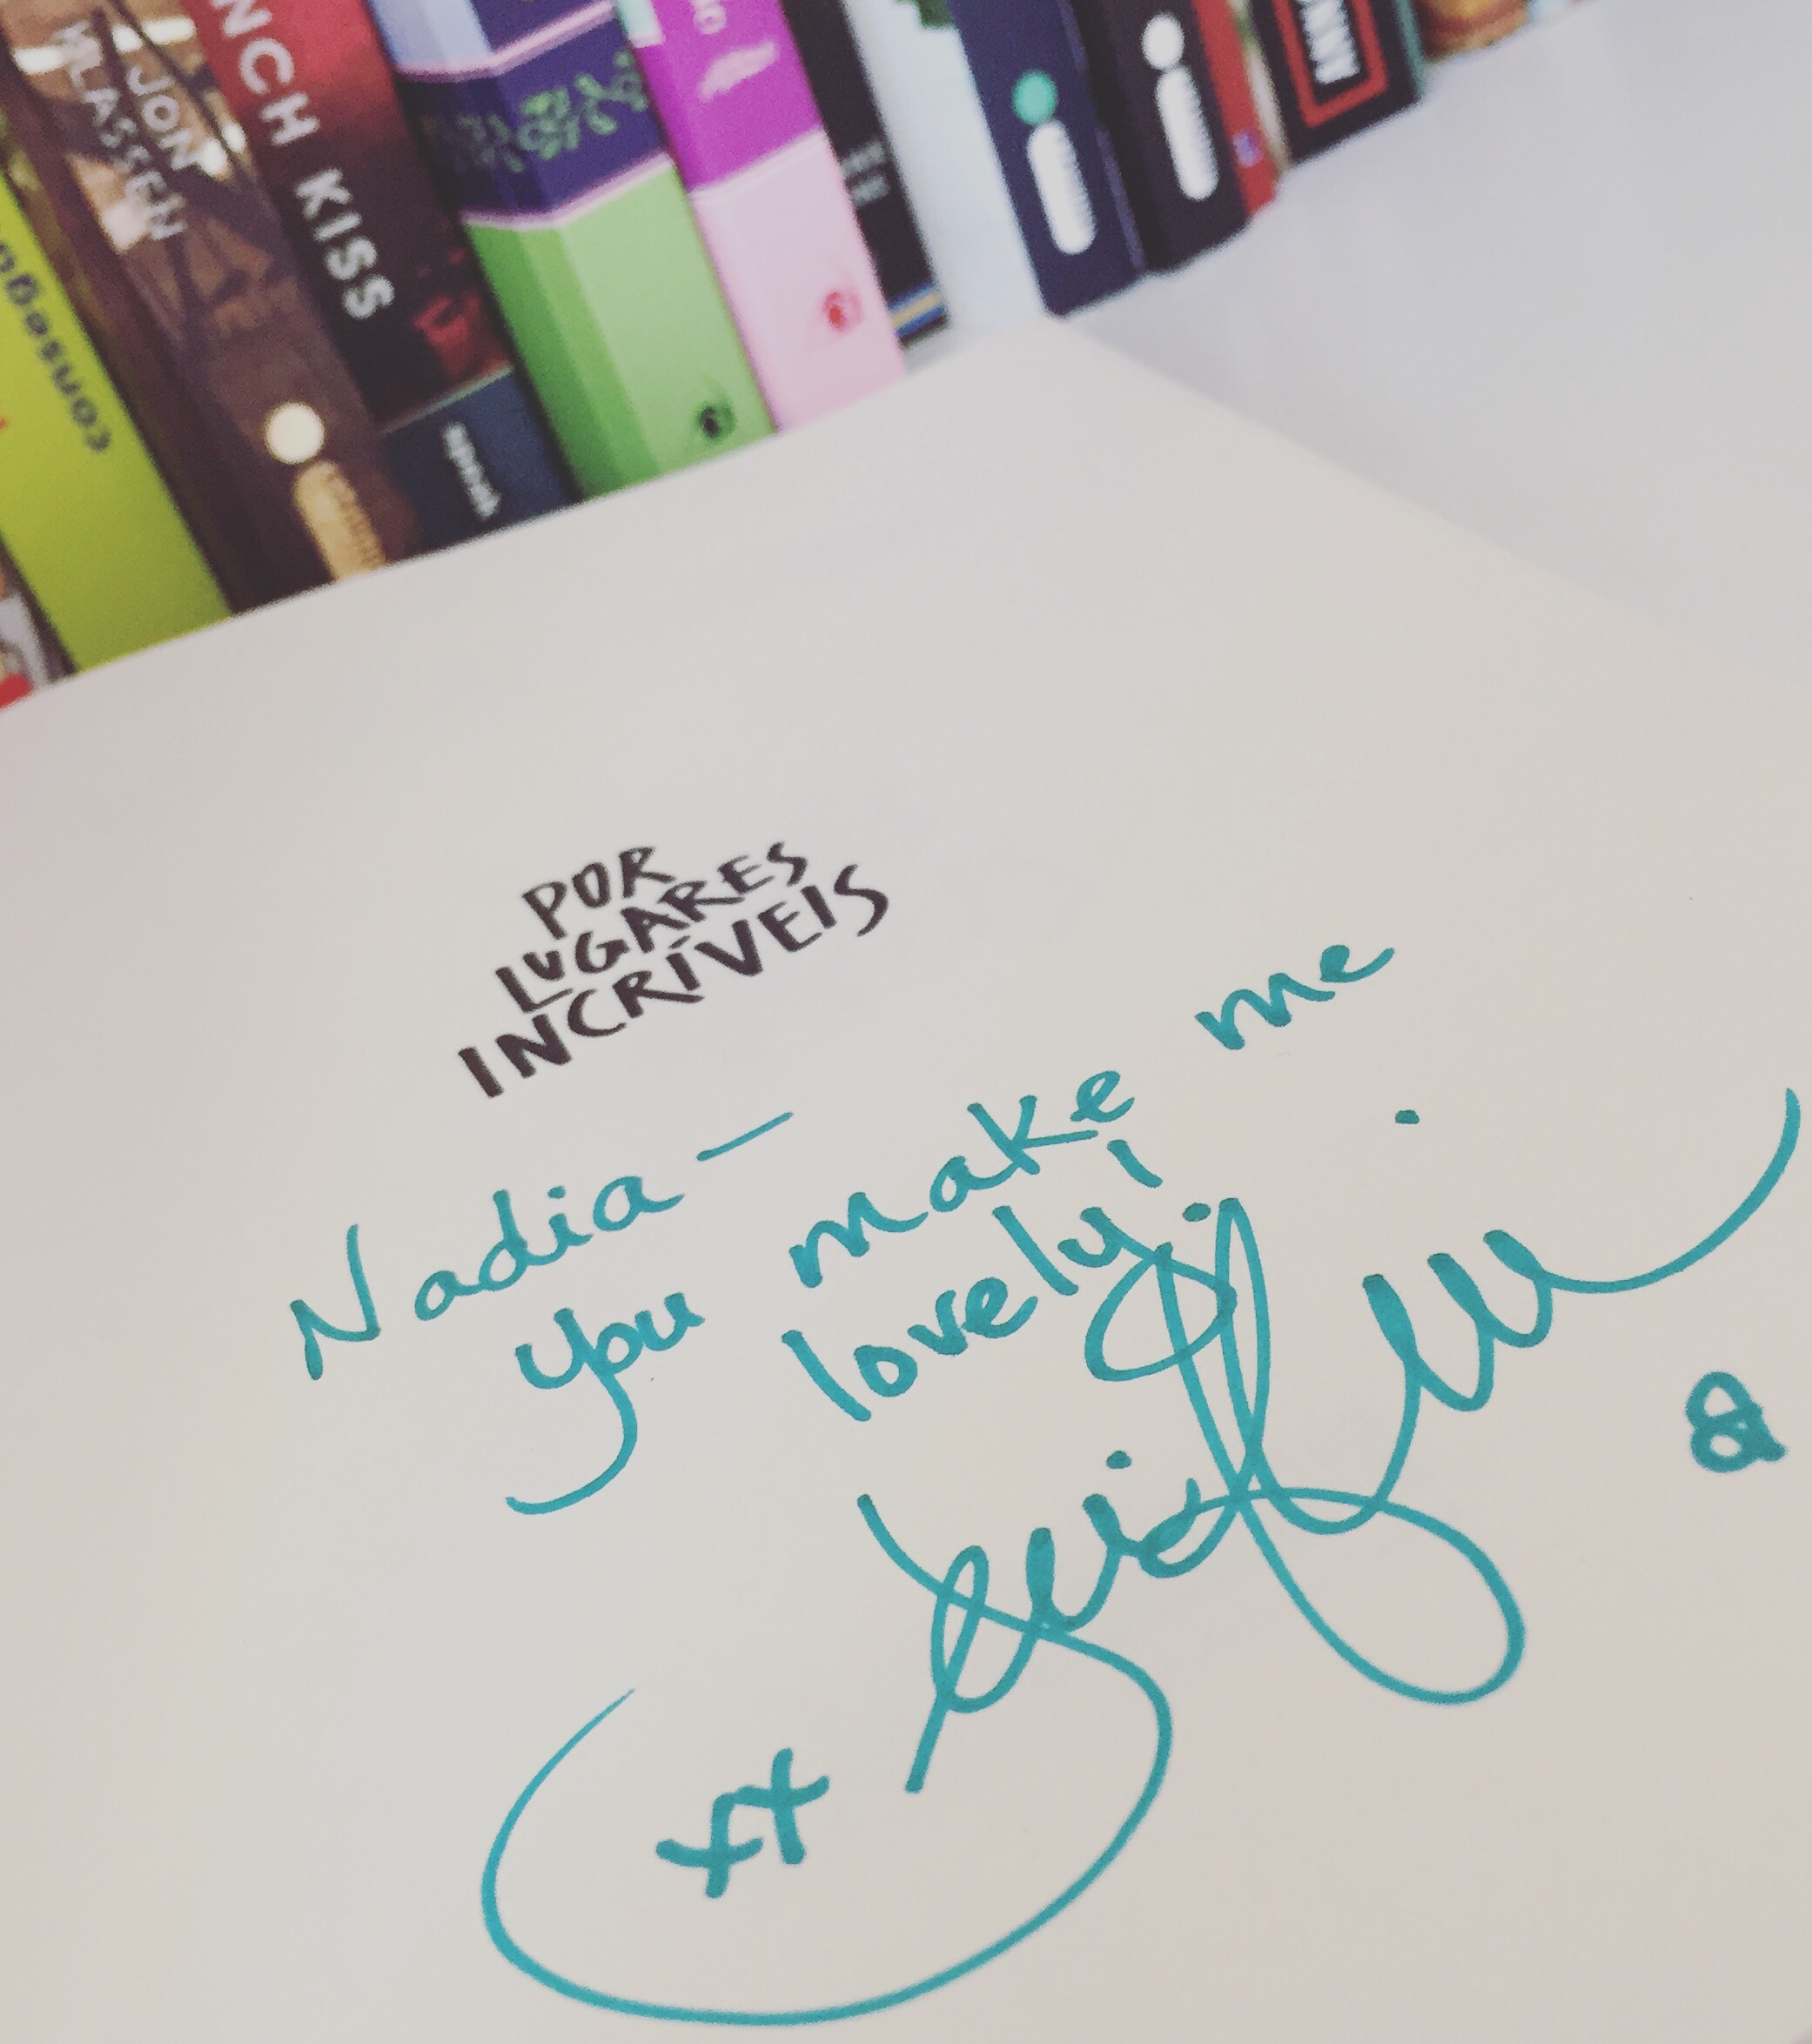 JON
KLASSEN
NCH KISS
speak
POR
LUGARES
INCRÍVEIS
Nadia —
you make me
lovely!
xx